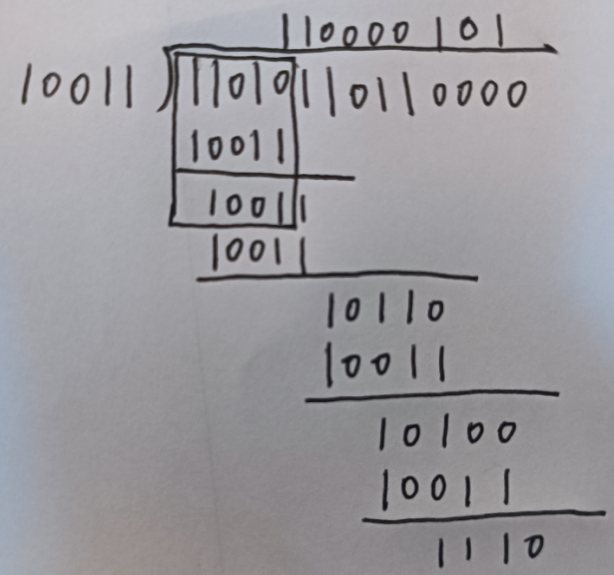 110000101
10011)11010110110000
10011
10011
10011
10110
10011
10100
10011
1110